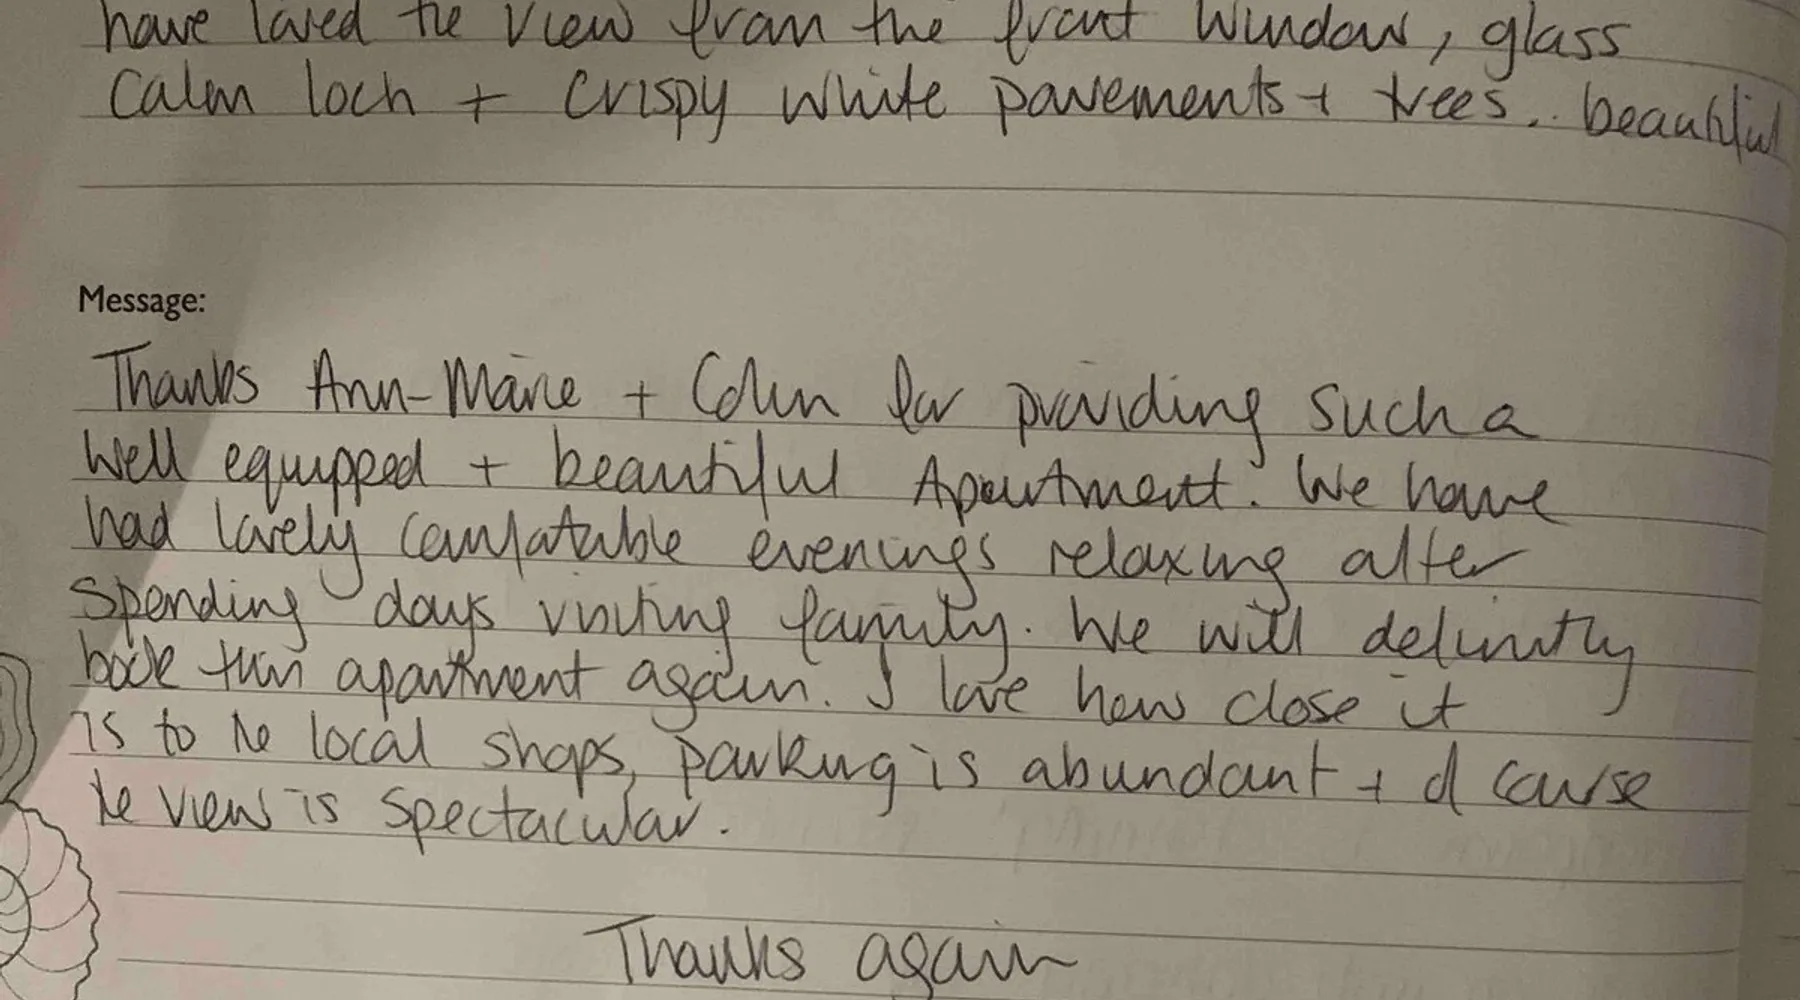 have loved the view from the front window, glass
calm loch + crispy white pavements + trees.. beautiful
Message:
Thanks Ann-Marie + Colin for providing such a
well equipped + beautiful Apartment. We have
had lovely comfatable evenings relaxing after
spending days visiting family. We will definitly
book this apartment again. I love how close it
is to the local shops, parking is abundant + of course
the view is spectacular.
Thanks again